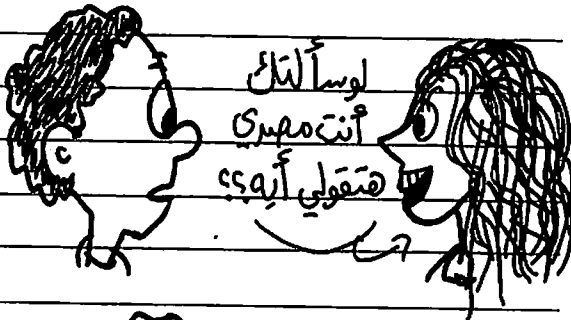 لو سألتك
أنت مصري
هتقولي أيه؟؟